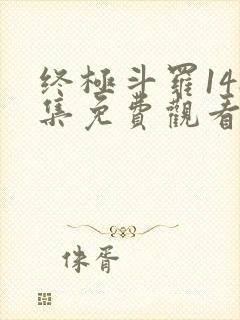 終極斗羅14
集免費觀看
侏胥